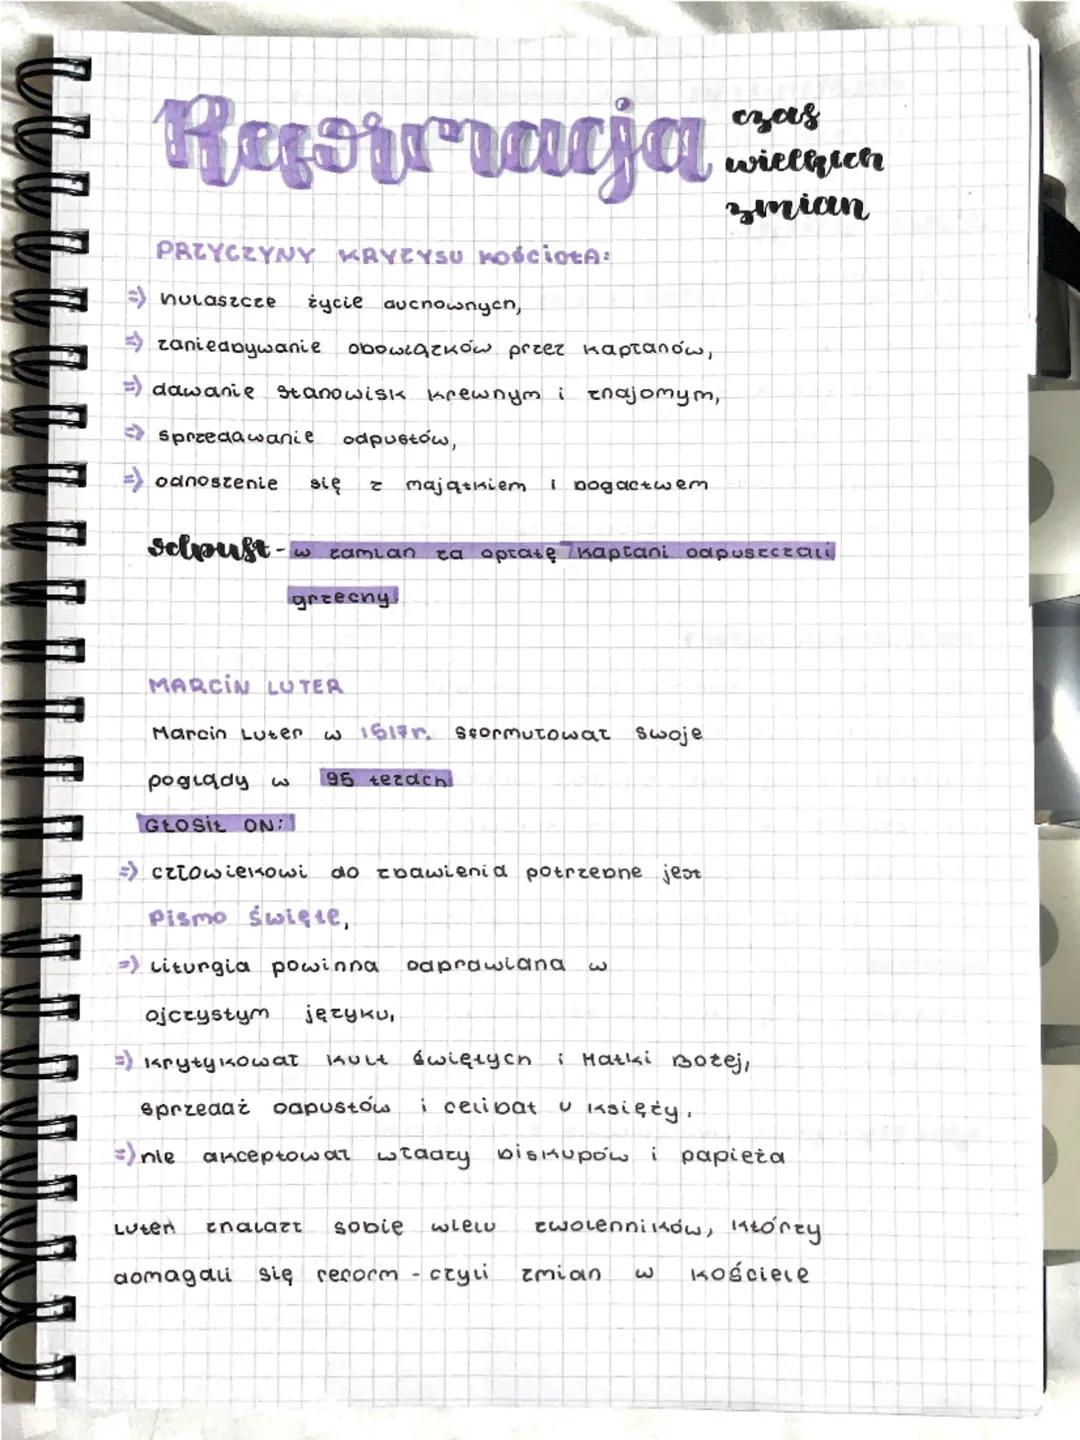 Reformacja
czas
wielkich
zmian
PRZYCZYNY KRYZYSU KOŚCIOŁA:
=> hulaszcze życie duchownych,
=> zaniedbywanie obowiązków przez kapłanów,
=> dawanie stanowisk krewnym i znajomym,
=> sprzedawanie odpustów,
=> odnoszenie się z majątkiem i bogactwem
odpust - w zamian za opłatę kapłani odpuszczali
grzechy
MARCIN LUTER
Marcin Luter w 1517r. sformułował swoje
poglądy w 95 tezach
GŁOSIŁ ON:
=> człowiekowi do zbawienia potrzebne jest
Pismo Święte,
=> Liturgia powinna odprawiana w
ojczystym języku,
=> krytykował kult świętych i Matki Bożej,
sprzedaż odpustów i celibat u księży.
=> nie akceptował władzy biskupów i papieża
Luter znalazł sobie wielu zwolenników, którzy
domagali się reform - czyli zmian w kościele